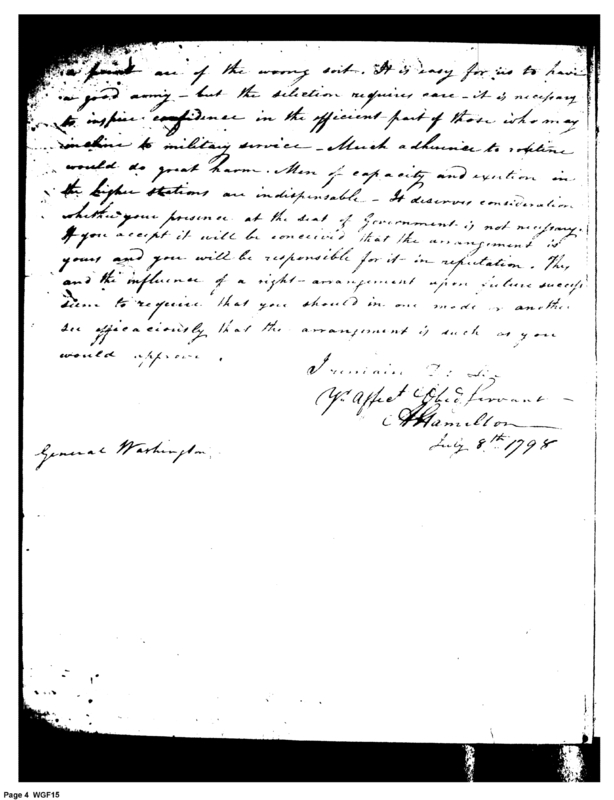 a point are of the wrong sort. It is easy for us to have
a good army – but the selection requires care – it is necessary
to inspire confidence in the efficient part of those who may
incline to military service – Much adherence to routine
would do great harm. Men of capacity and exertion in
the higher stations are indispensable – It deserves consideration
whether your presence at the seat of Government is not necessary.
If you accept it will be conceived that the arrangement is
yours and you will be responsible for it in reputation. This
and the influence of a right arrangement upon future success
seem to require that you should in one mode or another
see efficaciously that the arrangement is such as you
would approve.
I remain Dr Sir
Yr Affect & Obed Servant –
A Hamilton
July 8th 1798
General Washington
Page 4 WGF15